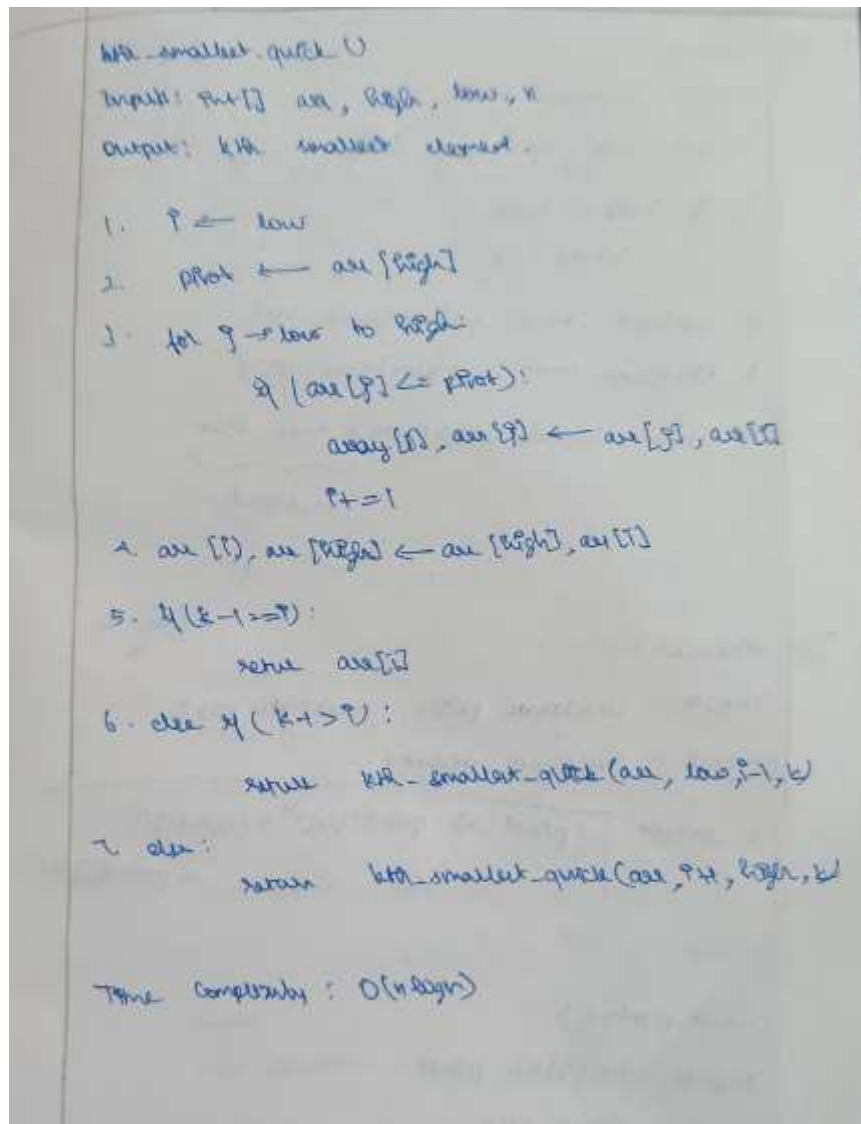 kth_smallest_quick ()
Input: int[] arr, high, low, k
Output: kth smallest element.
1. i ← low
2. pivot ← arr [high]
3. for j → low to high:
if (arr[j] <= pivot):
array [i], arr [j] ← arr [j], arr [i]
i+=1
4. arr [i], arr [high] ← arr [high], arr [i]
5. if (k-1==i):
return arr[i]
6. else if (k-1>i):
return kth_smallest_quick (arr, low, i-1, k)
7. else:
return kth_smallest_quick (arr, i+1, high, k)
Time Complexity : O(n logn)